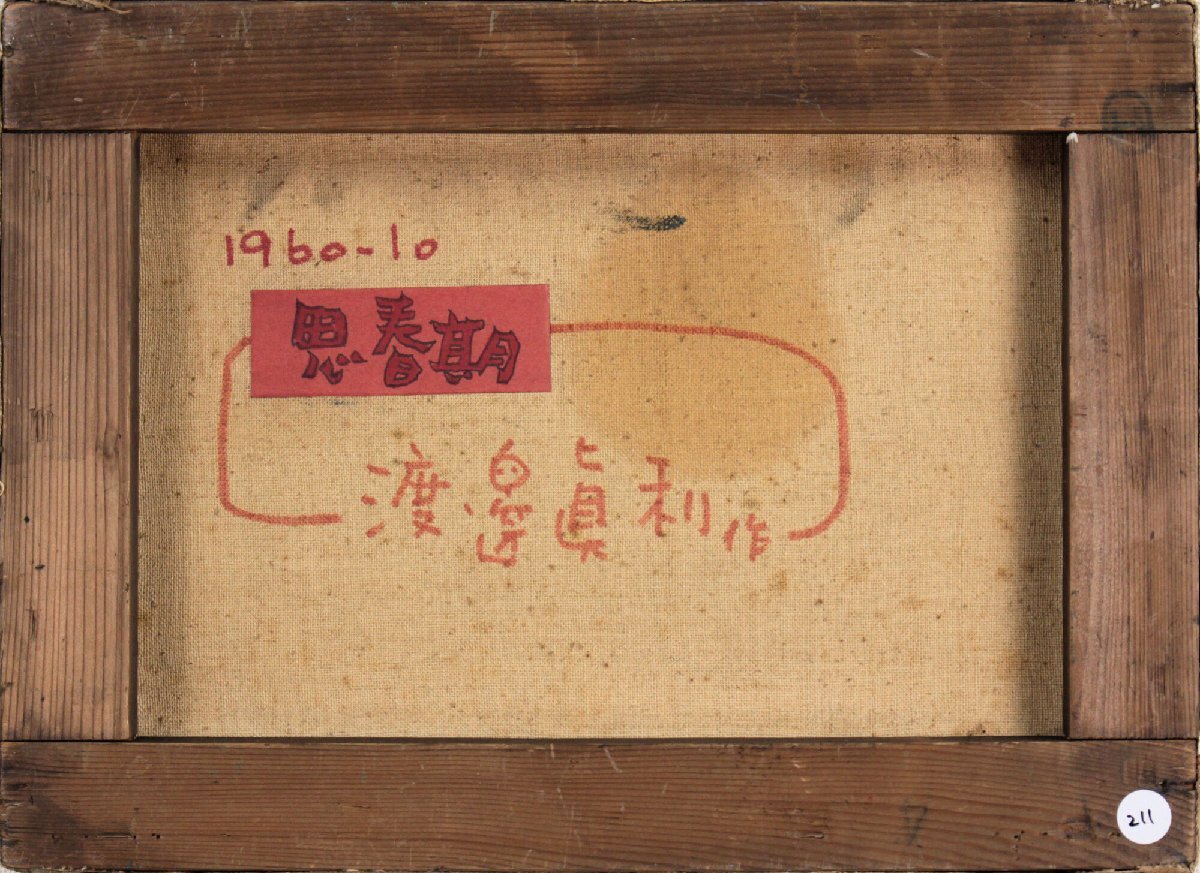 1960-10
思春期
渡邉眞利作
211